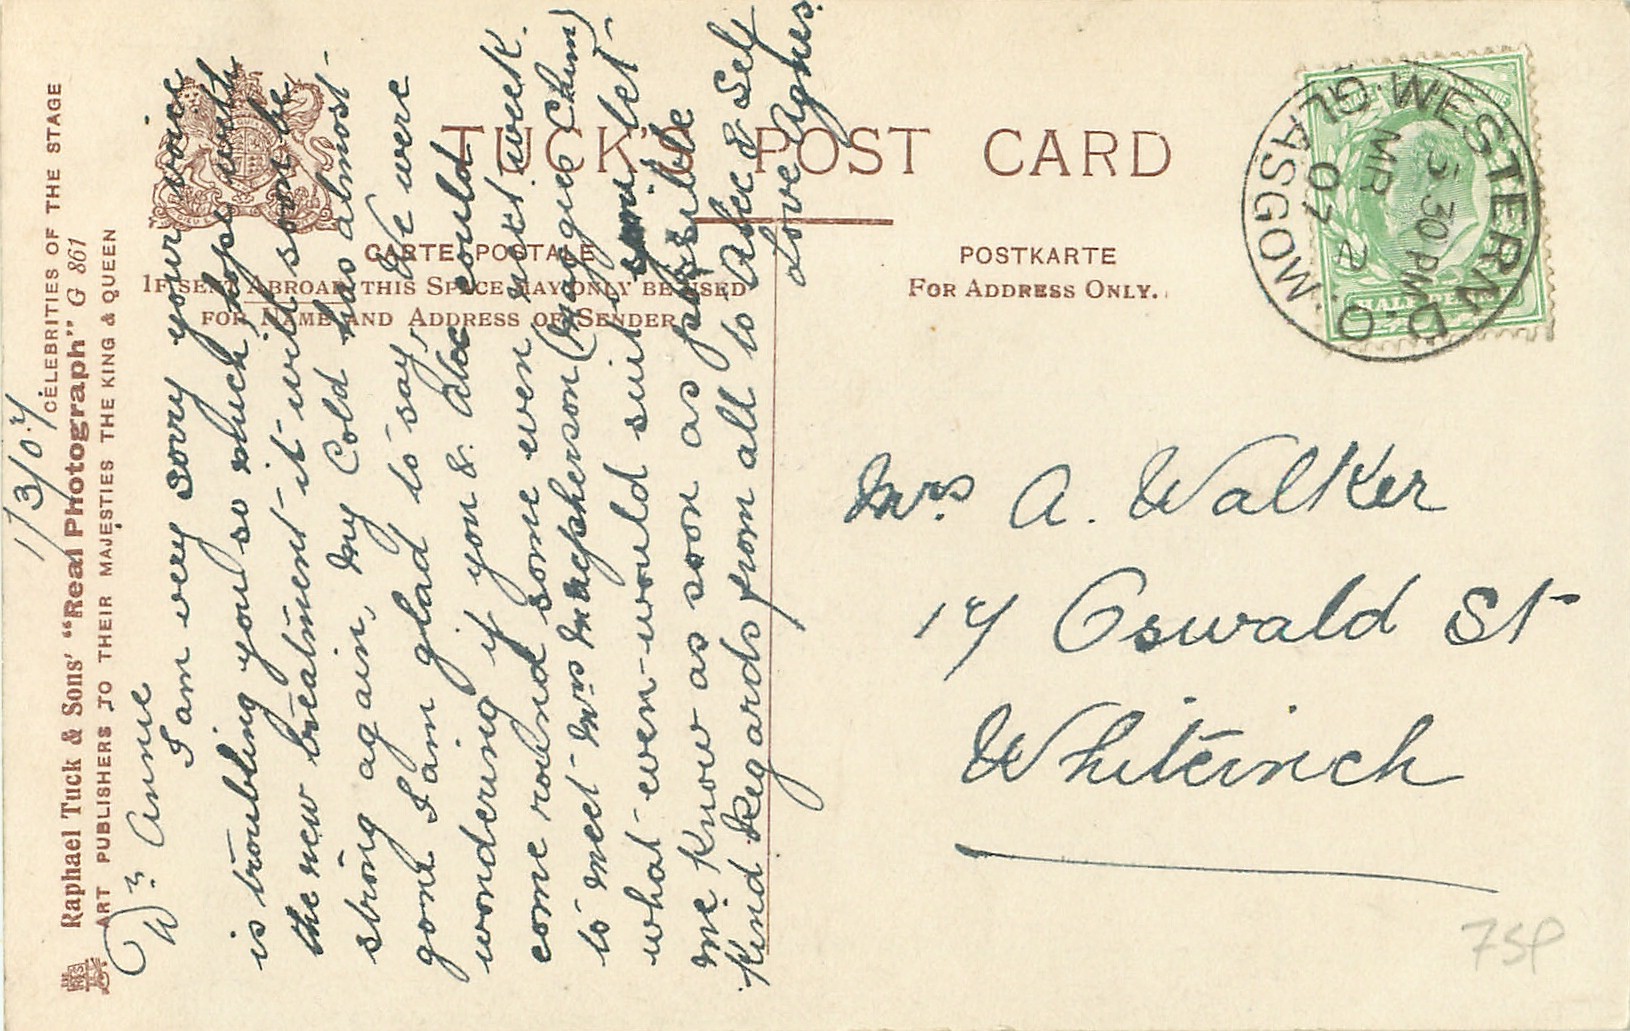 TUCK'S POST CARD
CARTE POSTALE
IF SENT ABROAD THIS SPACE MAY ONLY BE USED
FOR NAME AND ADDRESS OF SENDER
POSTKARTE
FOR ADDRESS ONLY.
WESTERN D.O.
GLASGOW
5.30 PM
MR 2
07
HALFPENNY
Mrs A. Walker
17 Oswald St
Whiteinch
75p
CELEBRITIES OF THE STAGE
Raphael Tuck & Sons' "Real Photograph" G 861
ART PUBLISHERS TO THEIR MAJESTIES THE KING & QUEEN
1/3/07
Dr Annie
I am very sorry your voice
is troubling you so much, hope with
the new treatment it will soon be
strong again, My Cold has almost
gone I am glad to say, We were
wondering if you & Alec could
come round some even next week.
to meet Mrs Macpherson (Maggie Chim)
what even would suit & let
me know as soon as possible
Kind Regards from all to Alec & Self
Love Agnes.